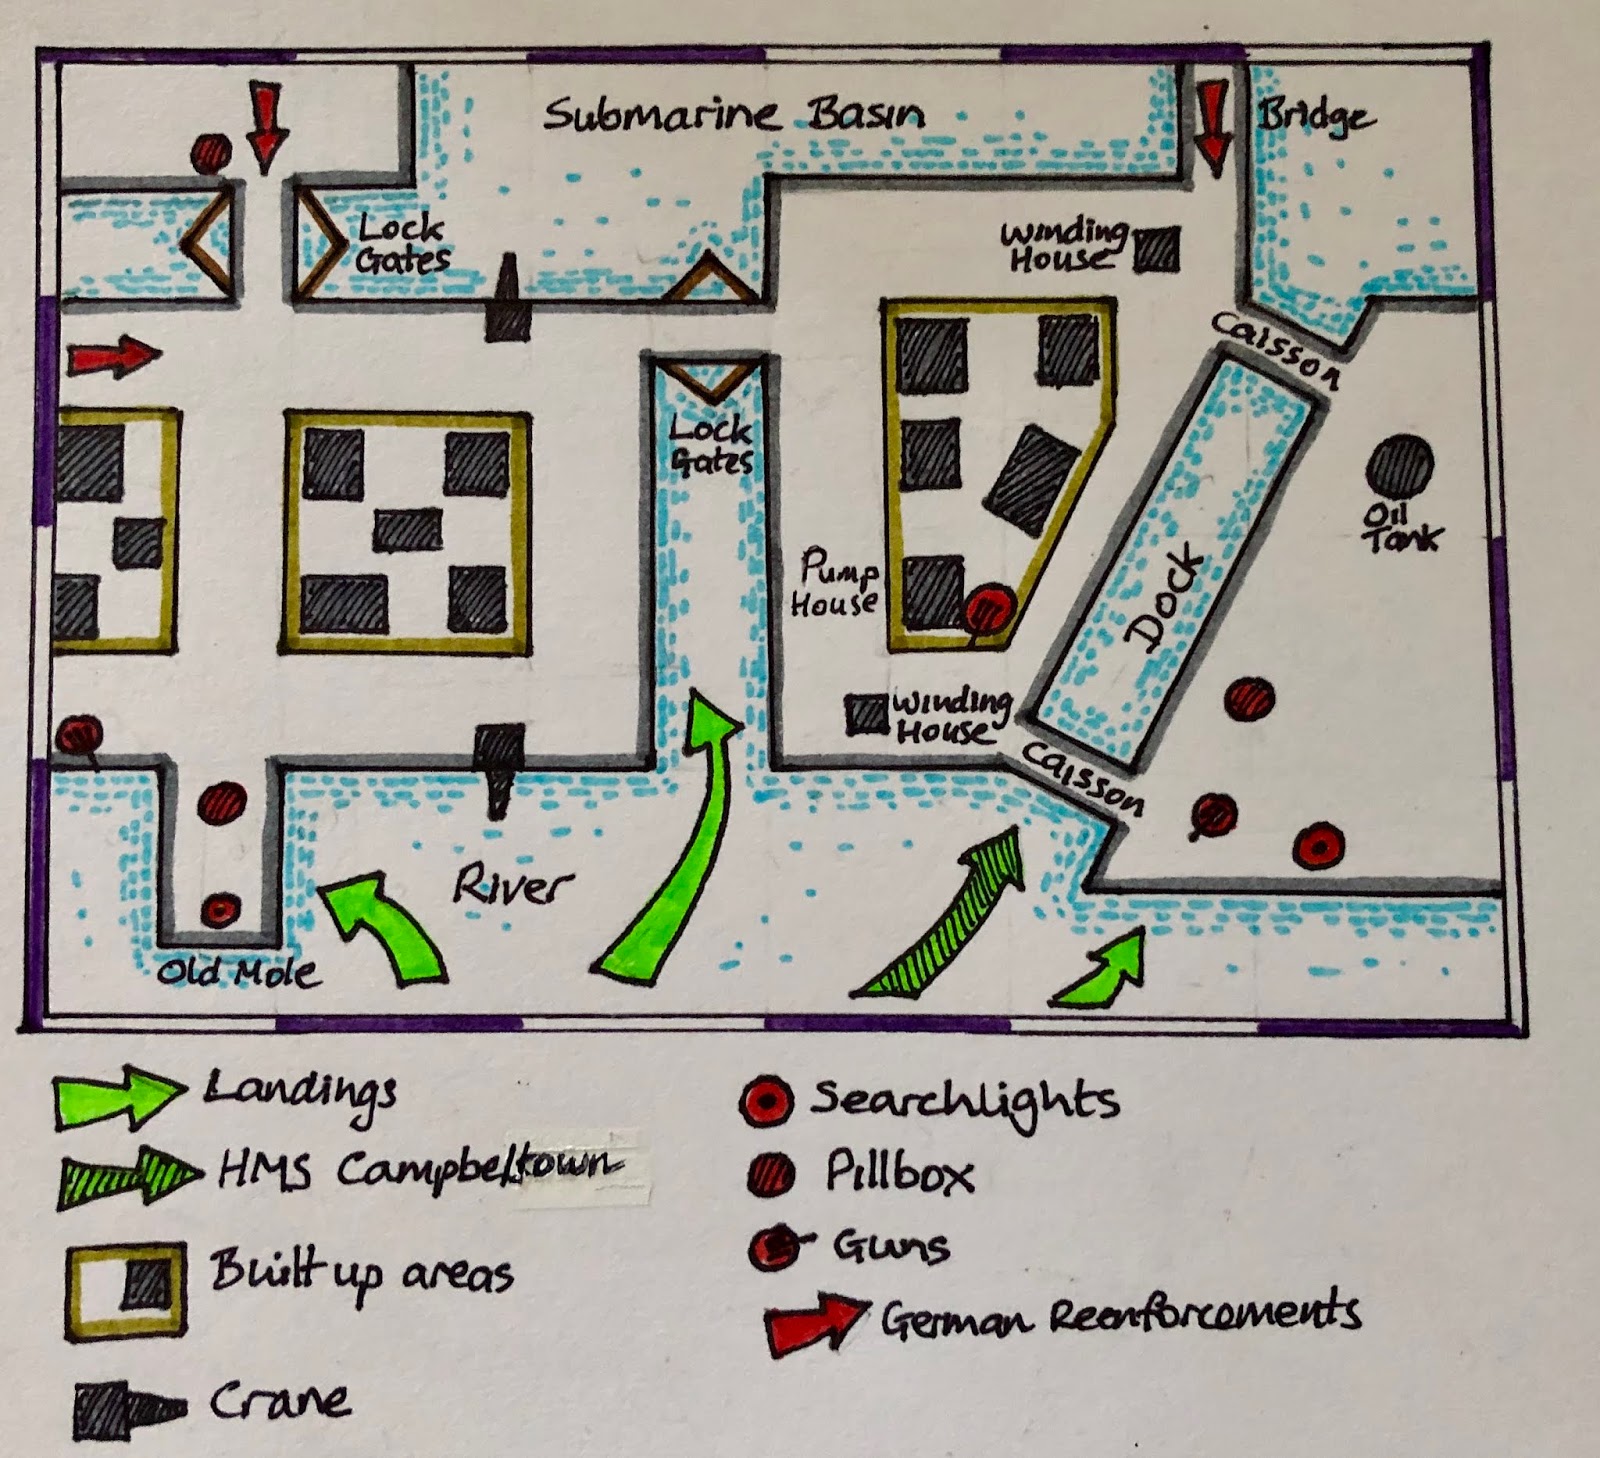 Submarine Basin
Bridge
Lock
Gates
Winding
House
Caisson
Lock
Gates
Oil
Tank
Pump
House
Dock
Winding
House
Caisson
River
Old Mole
Landings
HMS Campbeltown
Built up areas
Crane
Searchlights
Pillbox
Guns
German Reenforcements